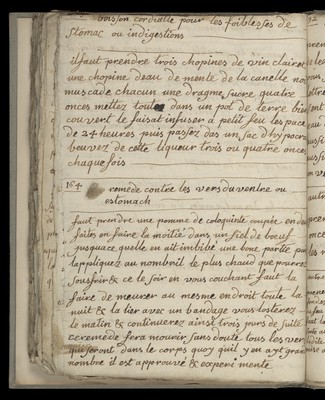 boisson cordialle pour les foiblesses de
stomac ou indigestions
il faut prendre trois chopines de vin clairet
une chopine deau de mente de la canelle no
muscade chacun une dragme sucre quatre
onces mettez toute dans un pot de terre bie
couvert le faisat infuser a petit feu lespace
de 24 heures puis passez dans un sac dhypocra
beuvez de cette liqueur trois ou quatre onces
chaque fois
164
remede contre les vers du ventre ou
estomach
faut prendre une pomme de coloquinte coupée en deu
faites en faire la moitié dans un fiel de boeuf
jusquace quelle en ait imbibé une bone partie pui
lappliquez au nombril le plus chaud que pourrez
soufrir & ce le soir en vous couchant faut la
faire de meurer au mesme endroit toute la
nuit & la lier avec un bandage vous losterez
le matin & continuerez ainsi trois jours de suite
ce remede fera mourir sans doute tous les vers
qui seront dans le corps quoy quil y en ayt grand
nombre il est approuvé & experimenté